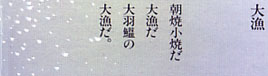 大漁
朝焼小焼だ
大漁だ
大羽鰮の
大漁だ。